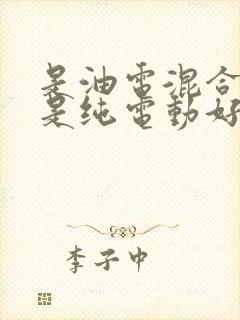 是油電混合
是纯電動好
李子中